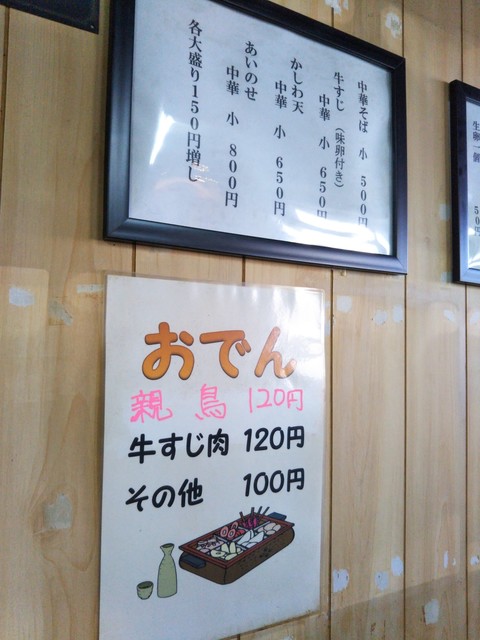 中華そば 小 500円
牛すじ（味卵付き）
中華 小 650円
かしわ天
中華 小 650円
あいのせ
中華 小 800円
各大盛り150円増し
生卵一個 50円
おでん
親鳥 120円
牛すじ肉 120円
その他 100円